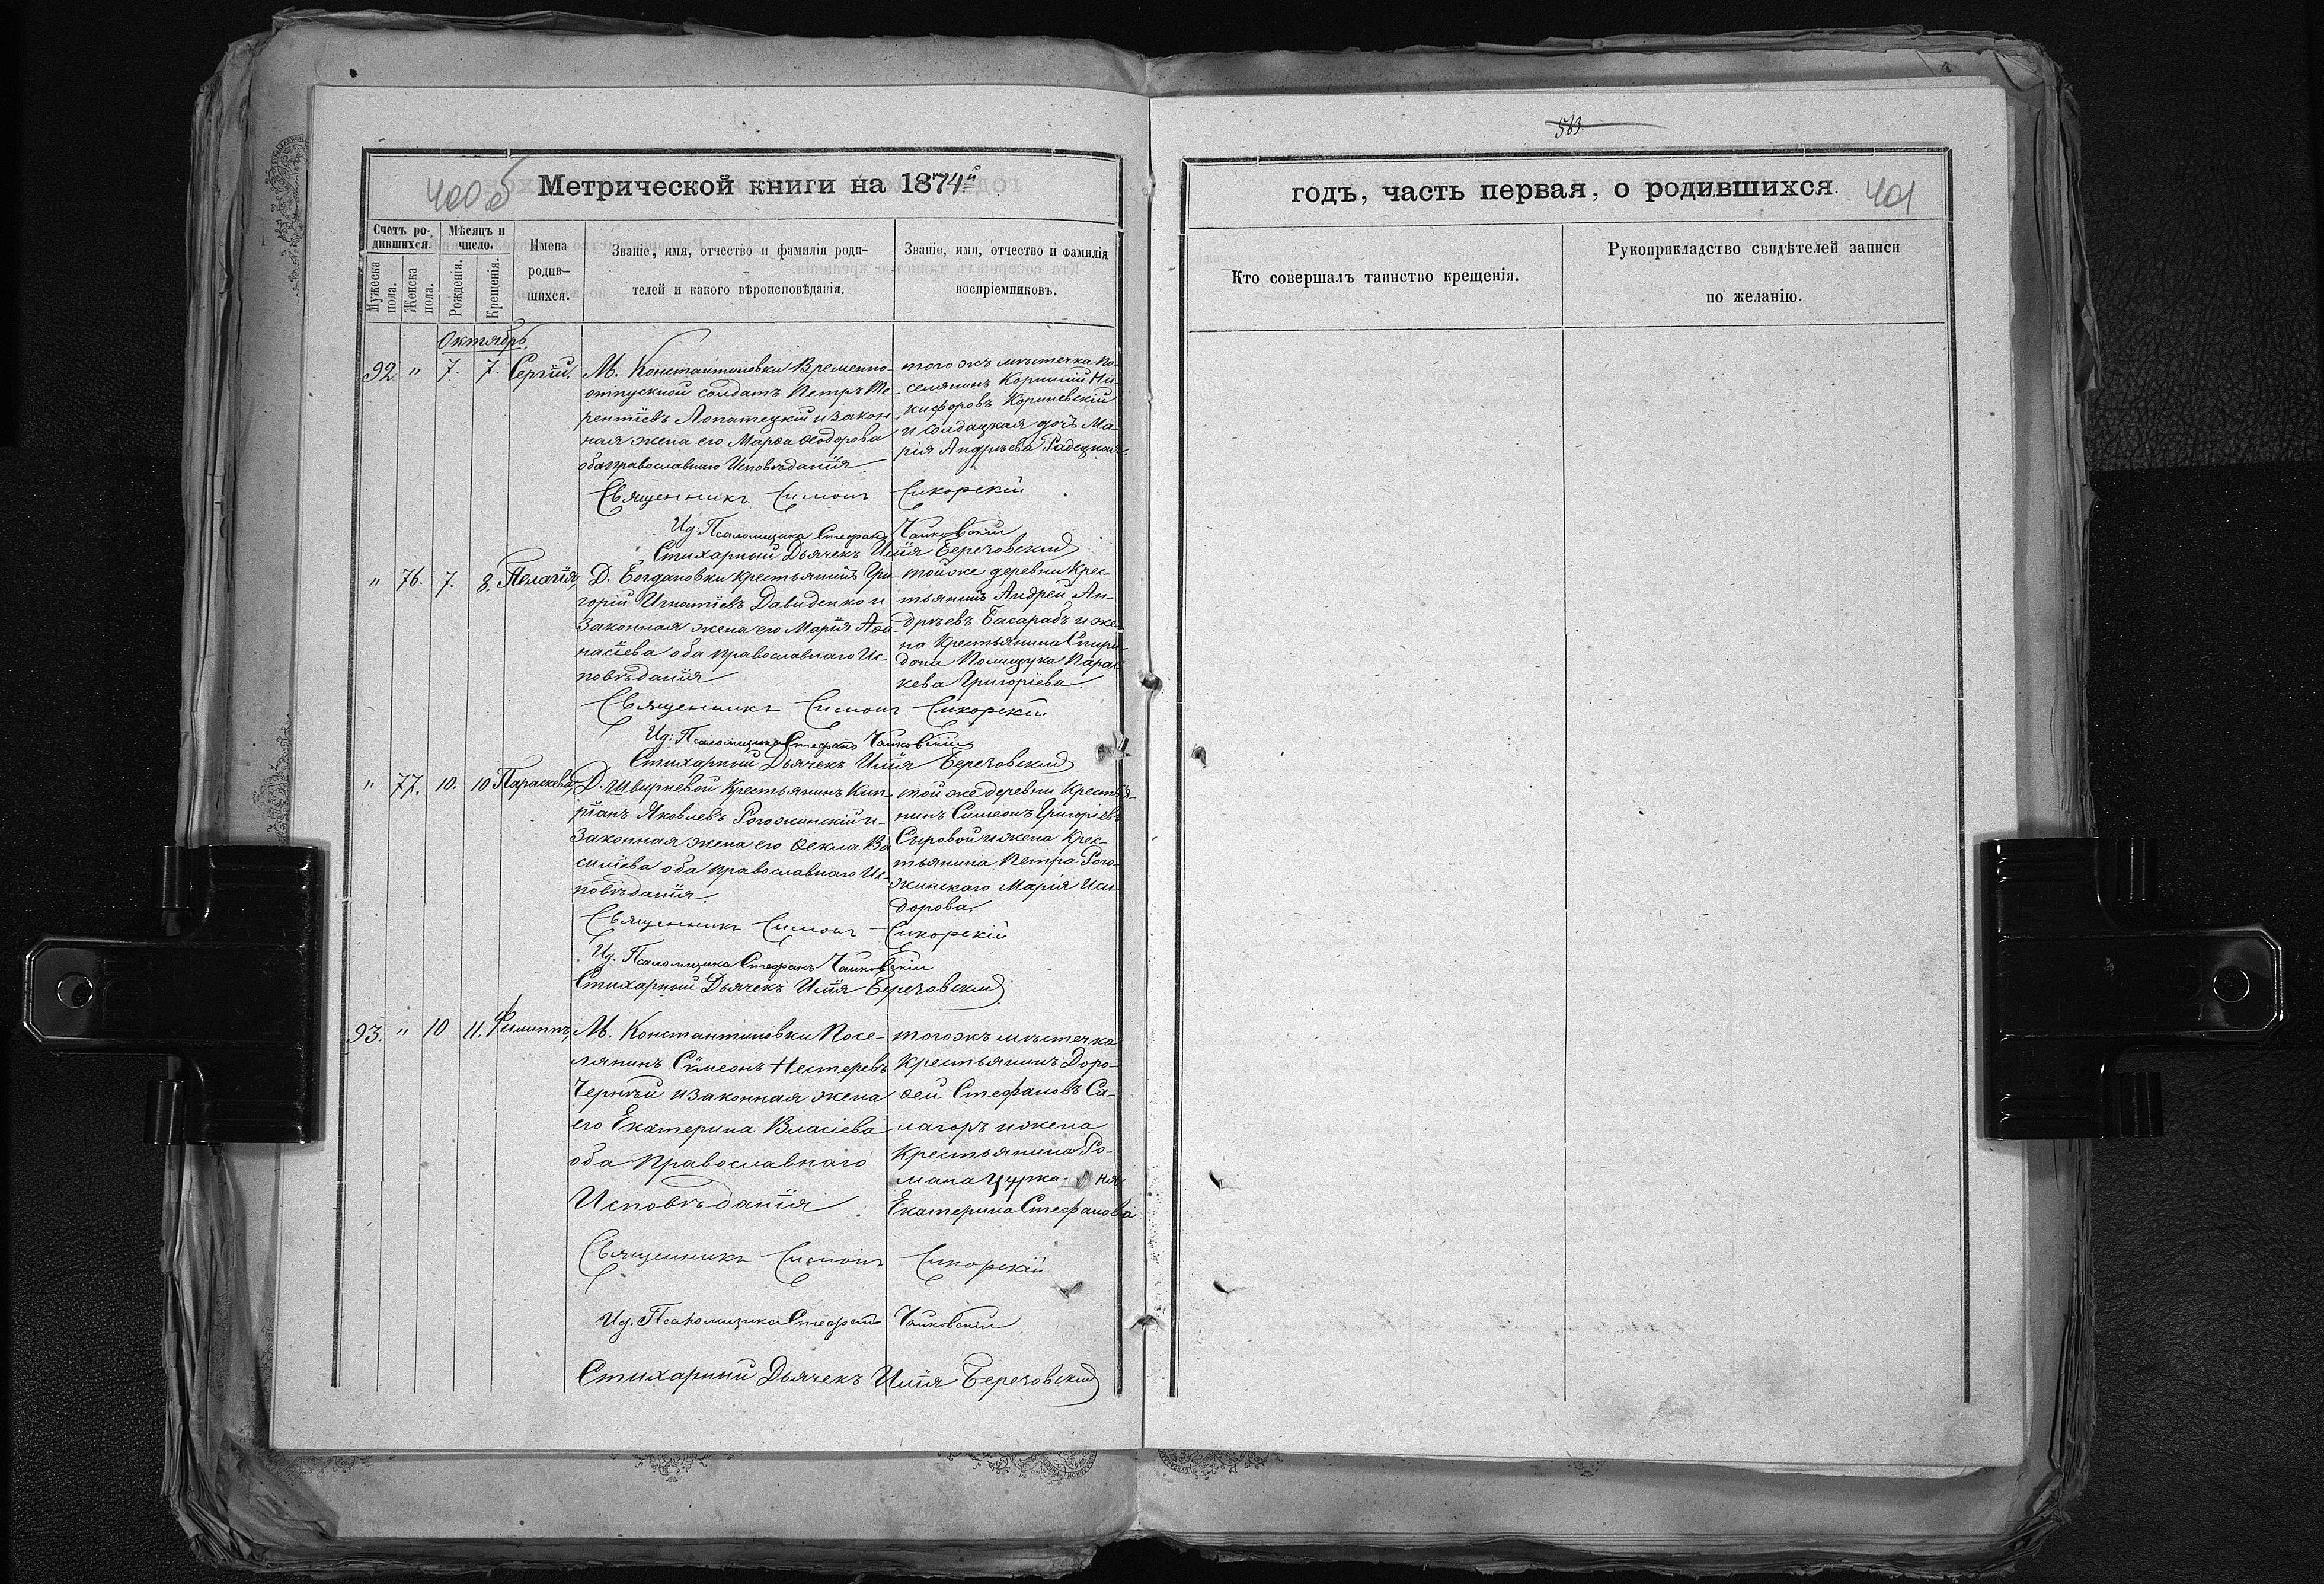 400 об
Метрической книги на 1874й
Счетъ ро-
дившихся.
Мѣсяцъ и
число.
Мужеска
пола.
Женска
пола.
Рожденія.
Крещенія.
Имена
родив-
шихся.
Званіе, имя, отчество и фамилія роди-
телей и какого вѣроисповѣданія.
Званіе, имя, отчество и фамилія
воспріемниковъ.
Октябрь.
92 " 7. 7. Сергій.
М. Константиновки Временно-
отпускной солдатъ Петръ Те-
рентіевъ Лопатецкій и закон
ная жена его Марѳа Ѳеодорова
оба православнаго Исповѣданія
того жъ мѣстечка по-
селянинъ Корнилій Ни-
кифоровъ Кориневскій
и солдацкая дочь Ма-
рія Андрѣева Радецкая.
Священникъ Симонъ Сикорскій
Ид: Псаломщика Стефанъ Чайковскій
Стихарный Дьячекъ Илія Березовский
" 76. 7. 8. Пелагія,
Д. Богдановки крестьянинъ Гри-
горій Игнатіевъ Давиденко и
Законная жена его Марія Аѳа-
насіева оба православнаго Ис-
повѣданія
той же деревни Крес-
тьянинъ Андрей Ан-
дрѣевъ Басарабъ и же-
на Крестьянина Спири-
дона Полищука Парас-
кева Григоріева.
Священникъ Симонъ Сикорскій
Ид: Псаломщика Стефанъ Чайковскій
Стихарный Дьячекъ Илія Березовский
" 77. 10. 10 Параскева,
Д. Швирневой Крестьянинъ Кип-
ріанъ Яковлевъ Рогожинскій и-
Законная жена его Ѳекла Ва
силіева оба православнаго Ис-
повѣданія.
той же деревни Крестья-
нинъ Симеонъ Григоріевъ
Сыровой и жена Крес-
тьянина Петра Рого-
жинскаго Марія Иси-
дорова.
Священникъ Симонъ Сикорскій
Ид. Псаломщика Стефанъ Чайковскій
Стихарный Дьячекъ Илія Березовский
93. " 10 11. Филиппъ,
М. Константиновки Посе-
лянинъ Сѵмеонъ Нестеревъ
Чернѣй и законная жена
его Екатерина Власіева
оба Православнаго
Исповѣданія
того жъ мѣстечка
Крестьянинъ Доро-
ѳей Стефановъ Са-
лагоръ и жена
Крестьянина Ро-
мана Цурка
Екатерина Стефанова
Священникъ Симонъ Сикорскій
Ид. Псаломщика Стефанъ Чайковскій
Стихарный Дьячекъ Илія Березовский
583
годъ, часть первая, о родившихся.
401
Кто совершалъ таинство крещенія.
Рукоприкладство свидѣтелей записи
по желанію.